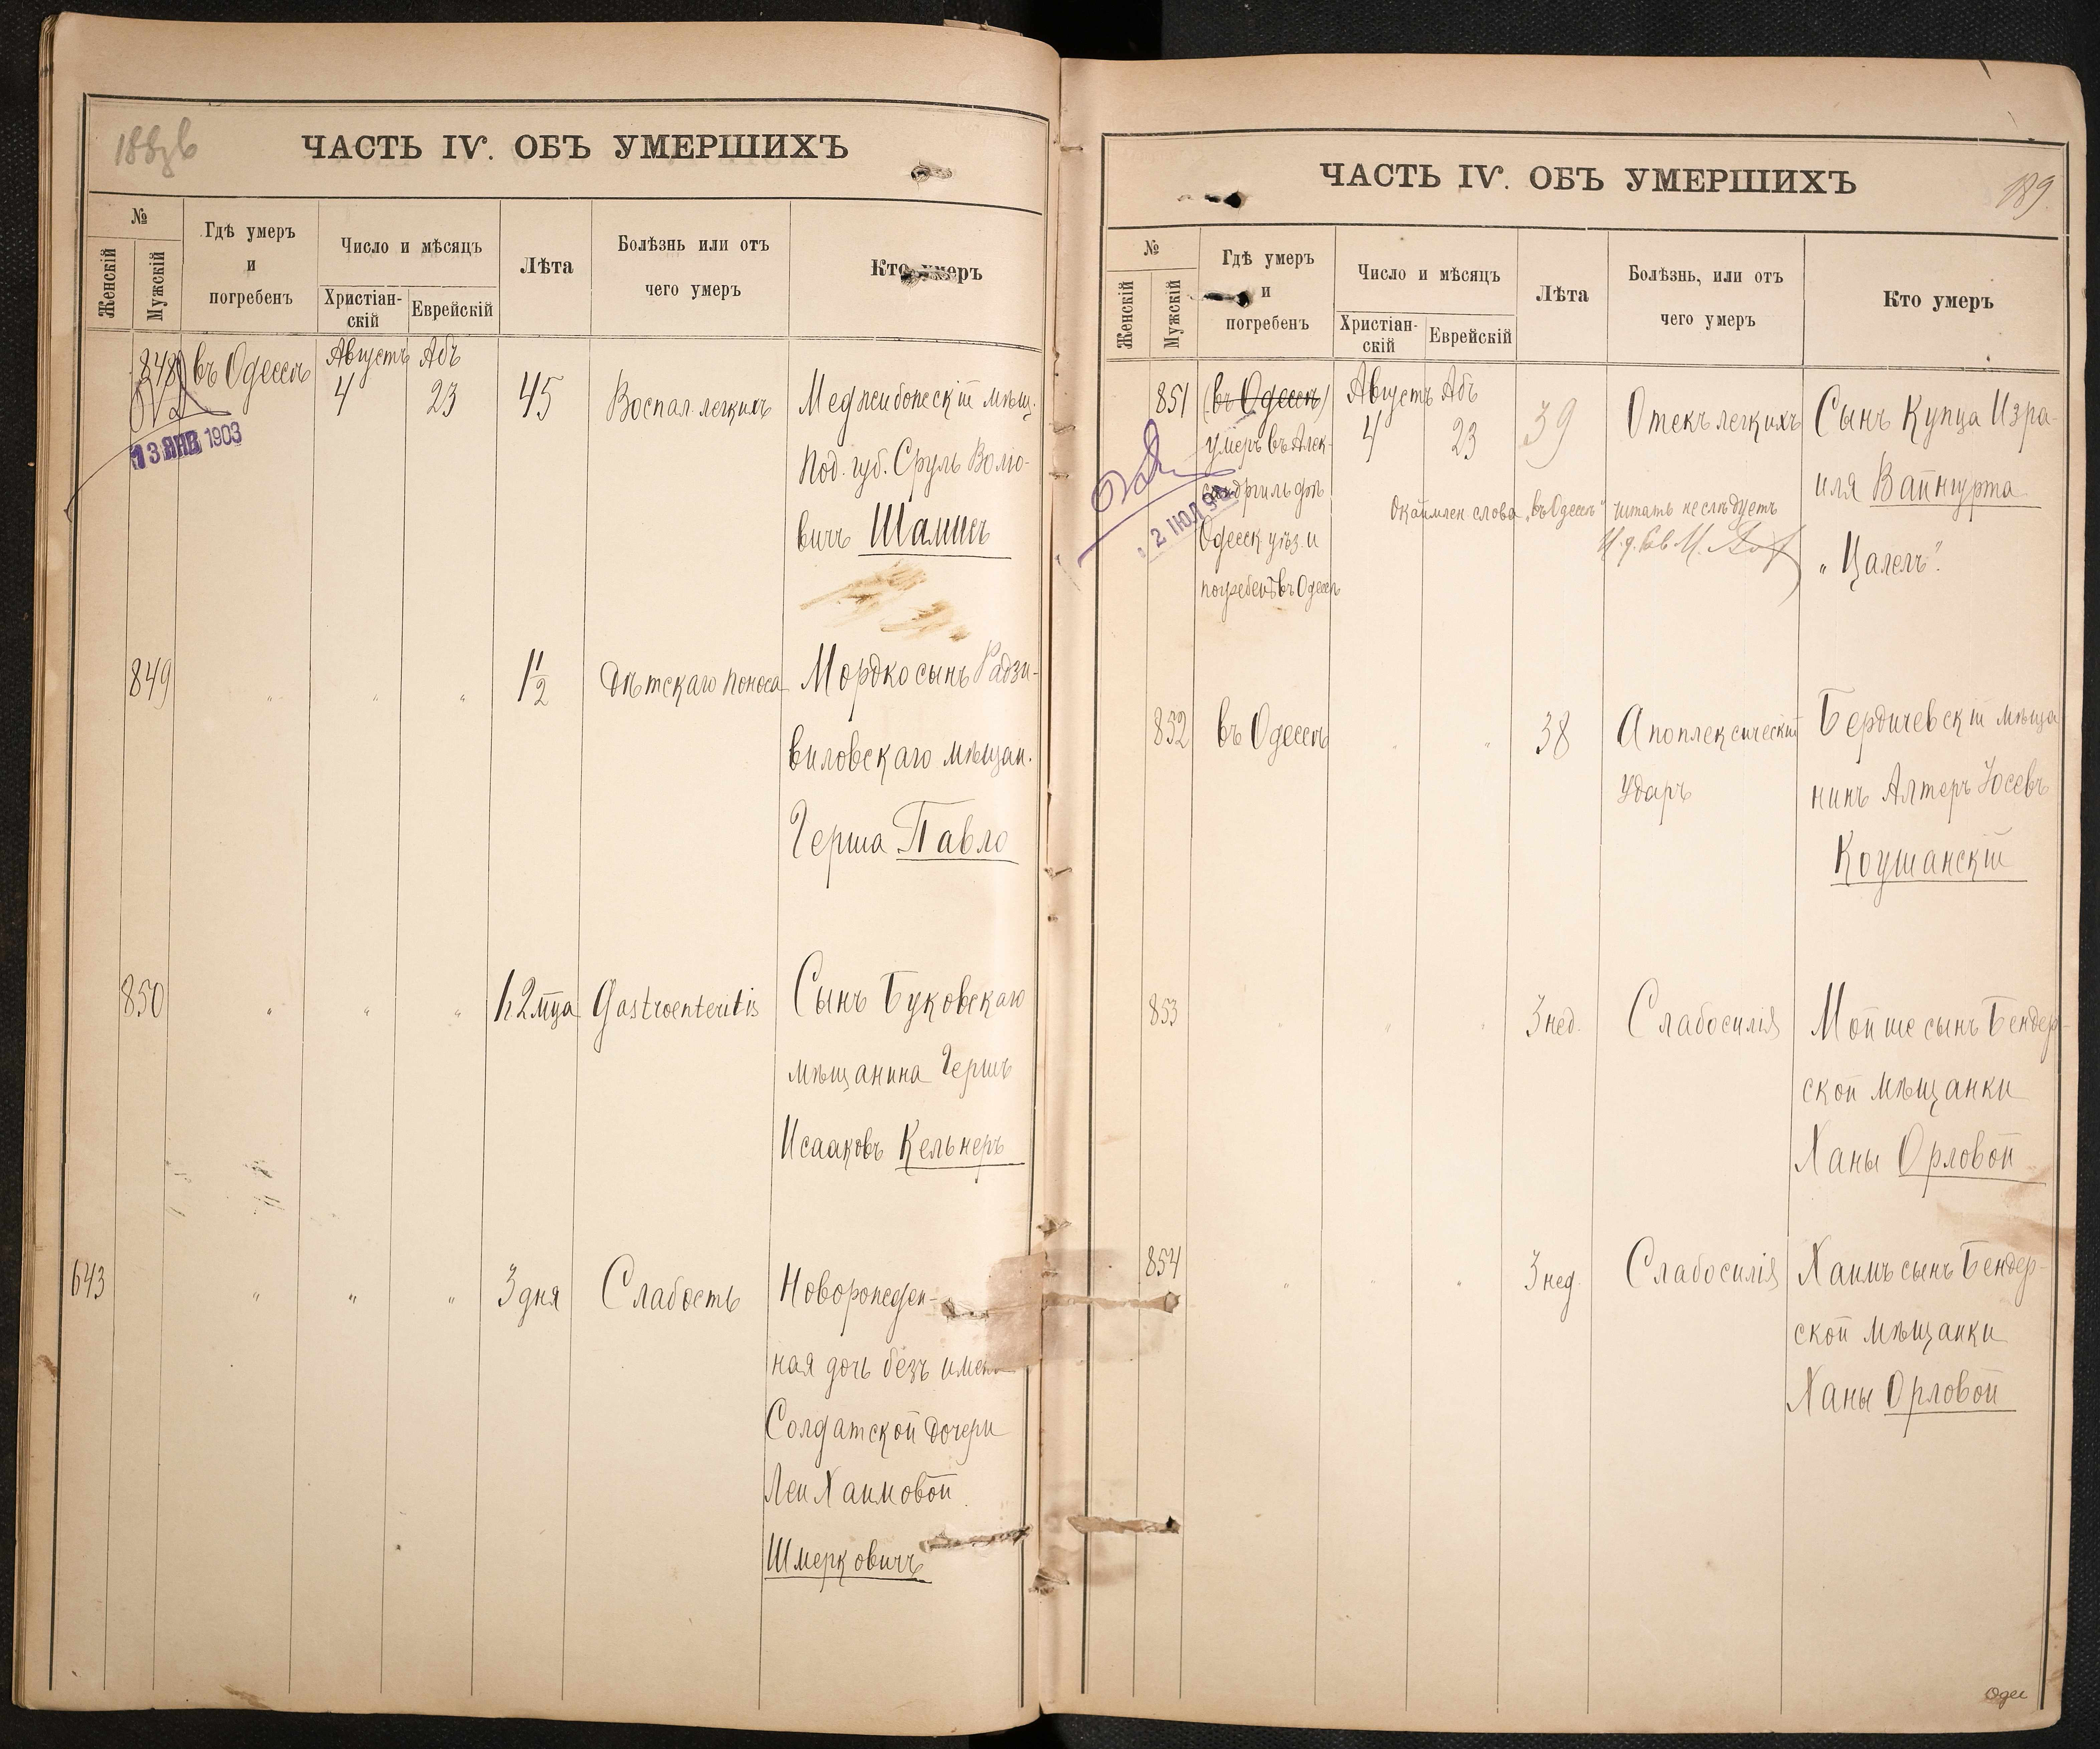 ЧАСТЬ IV. ОБЪ УМЕРШИХЪ
№
Женскій
Мужскій
Гдѣ умеръ
и
погребенъ
Число и мѣсяцъ
Христіан-
скій
Еврейскій
Лѣта
Болѣзнь или отъ
чего умеръ
Кто умеръ
848 въ Одессѣ Августъ Абъ
4 23 45 Воспал. легкихъ Меджибожскій мѣщ.
13 ЯНВ 1903
Под. губ. Сруль Волю-
вичъ Шамисъ
849 " " " 1 1/2 Дѣтскаго поноса Мордко сынъ Радзи-
виловскаго мѣщан.
Герша Павло
850 " " " 1. 2 мца Gastroenteritis Сынъ Буковскаго
мѣщанина Гершъ
Исааковъ Кельнеръ
643 " " " 3 дня Слабость Новорожден-
ная дочь безъ имени
Солдатской дочери
Леи Хаимовой
Шмерковичъ
ЧАСТЬ IV. ОБЪ УМЕРШИХЪ
189.
№
Женскій
Мужскій
Гдѣ умеръ
и
погребенъ
Число и мѣсяцъ
Христіан-
скій
Еврейскій
Лѣта
Болѣзнь, или отъ
чего умеръ
Кто умеръ
851 (въ Одессѣ) Августъ Абъ
4 23 39 Отекъ легкихъ Сынъ Купца Изра-
умеръ въ Алек-
сандргильфѣ
иля Вайнгурта
2 ИЮЛ
слова „въ Одессѣ" читать не слѣдуетъ
Одесск. уѣз. и
„Цалелъ".
погребенъ въ Одессѣ
852 въ Одессѣ " " 38 Апоплексическій Бердичевскій мѣща-
Ударъ нинъ Алтеръ Іосевъ
Коушанскій
853 " " " 3 нед. Слабосилія Мойше сынъ Бендер-
ской мѣщанки
Ханы Орловой
854 " " " 3 нед. Слабосилія Хаимъ сынъ Бендер-
ской мѣщанки
Ханы Орловой